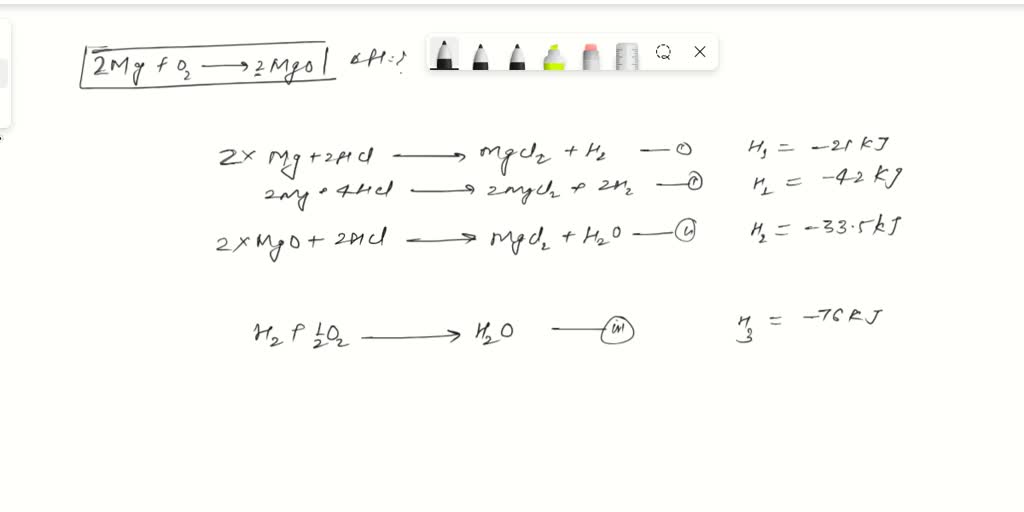 2Mg + O₂ ⟶ 2MgO ΔH=?
2× Mg + 2HCl ⟶ MgCl₂ + H₂ —① H₁ = -21 kJ
2Mg + 4HCl ⟶ 2MgCl₂ + 2H₂ —① H₁ = -42 kJ
2× MgO + 2HCl ⟶ MgCl₂ + H₂O —(ii) H₂ = -33.5 kJ
H₂ + ½O₂ ⟶ H₂O —(iii) H₃ = -76 kJ